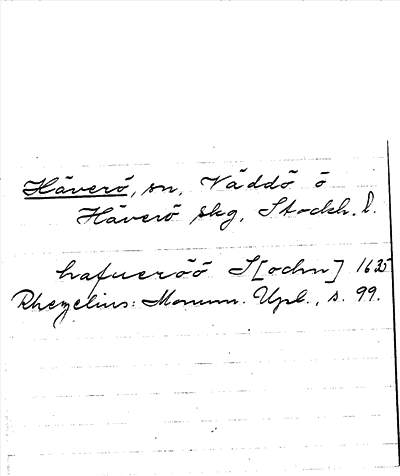 Häverö, sn, Väddö ö
Häverö skg, Stockh. l.
hafueröö S[ochn] 1635
Rhezelius: Monum. Upl., s. 99.